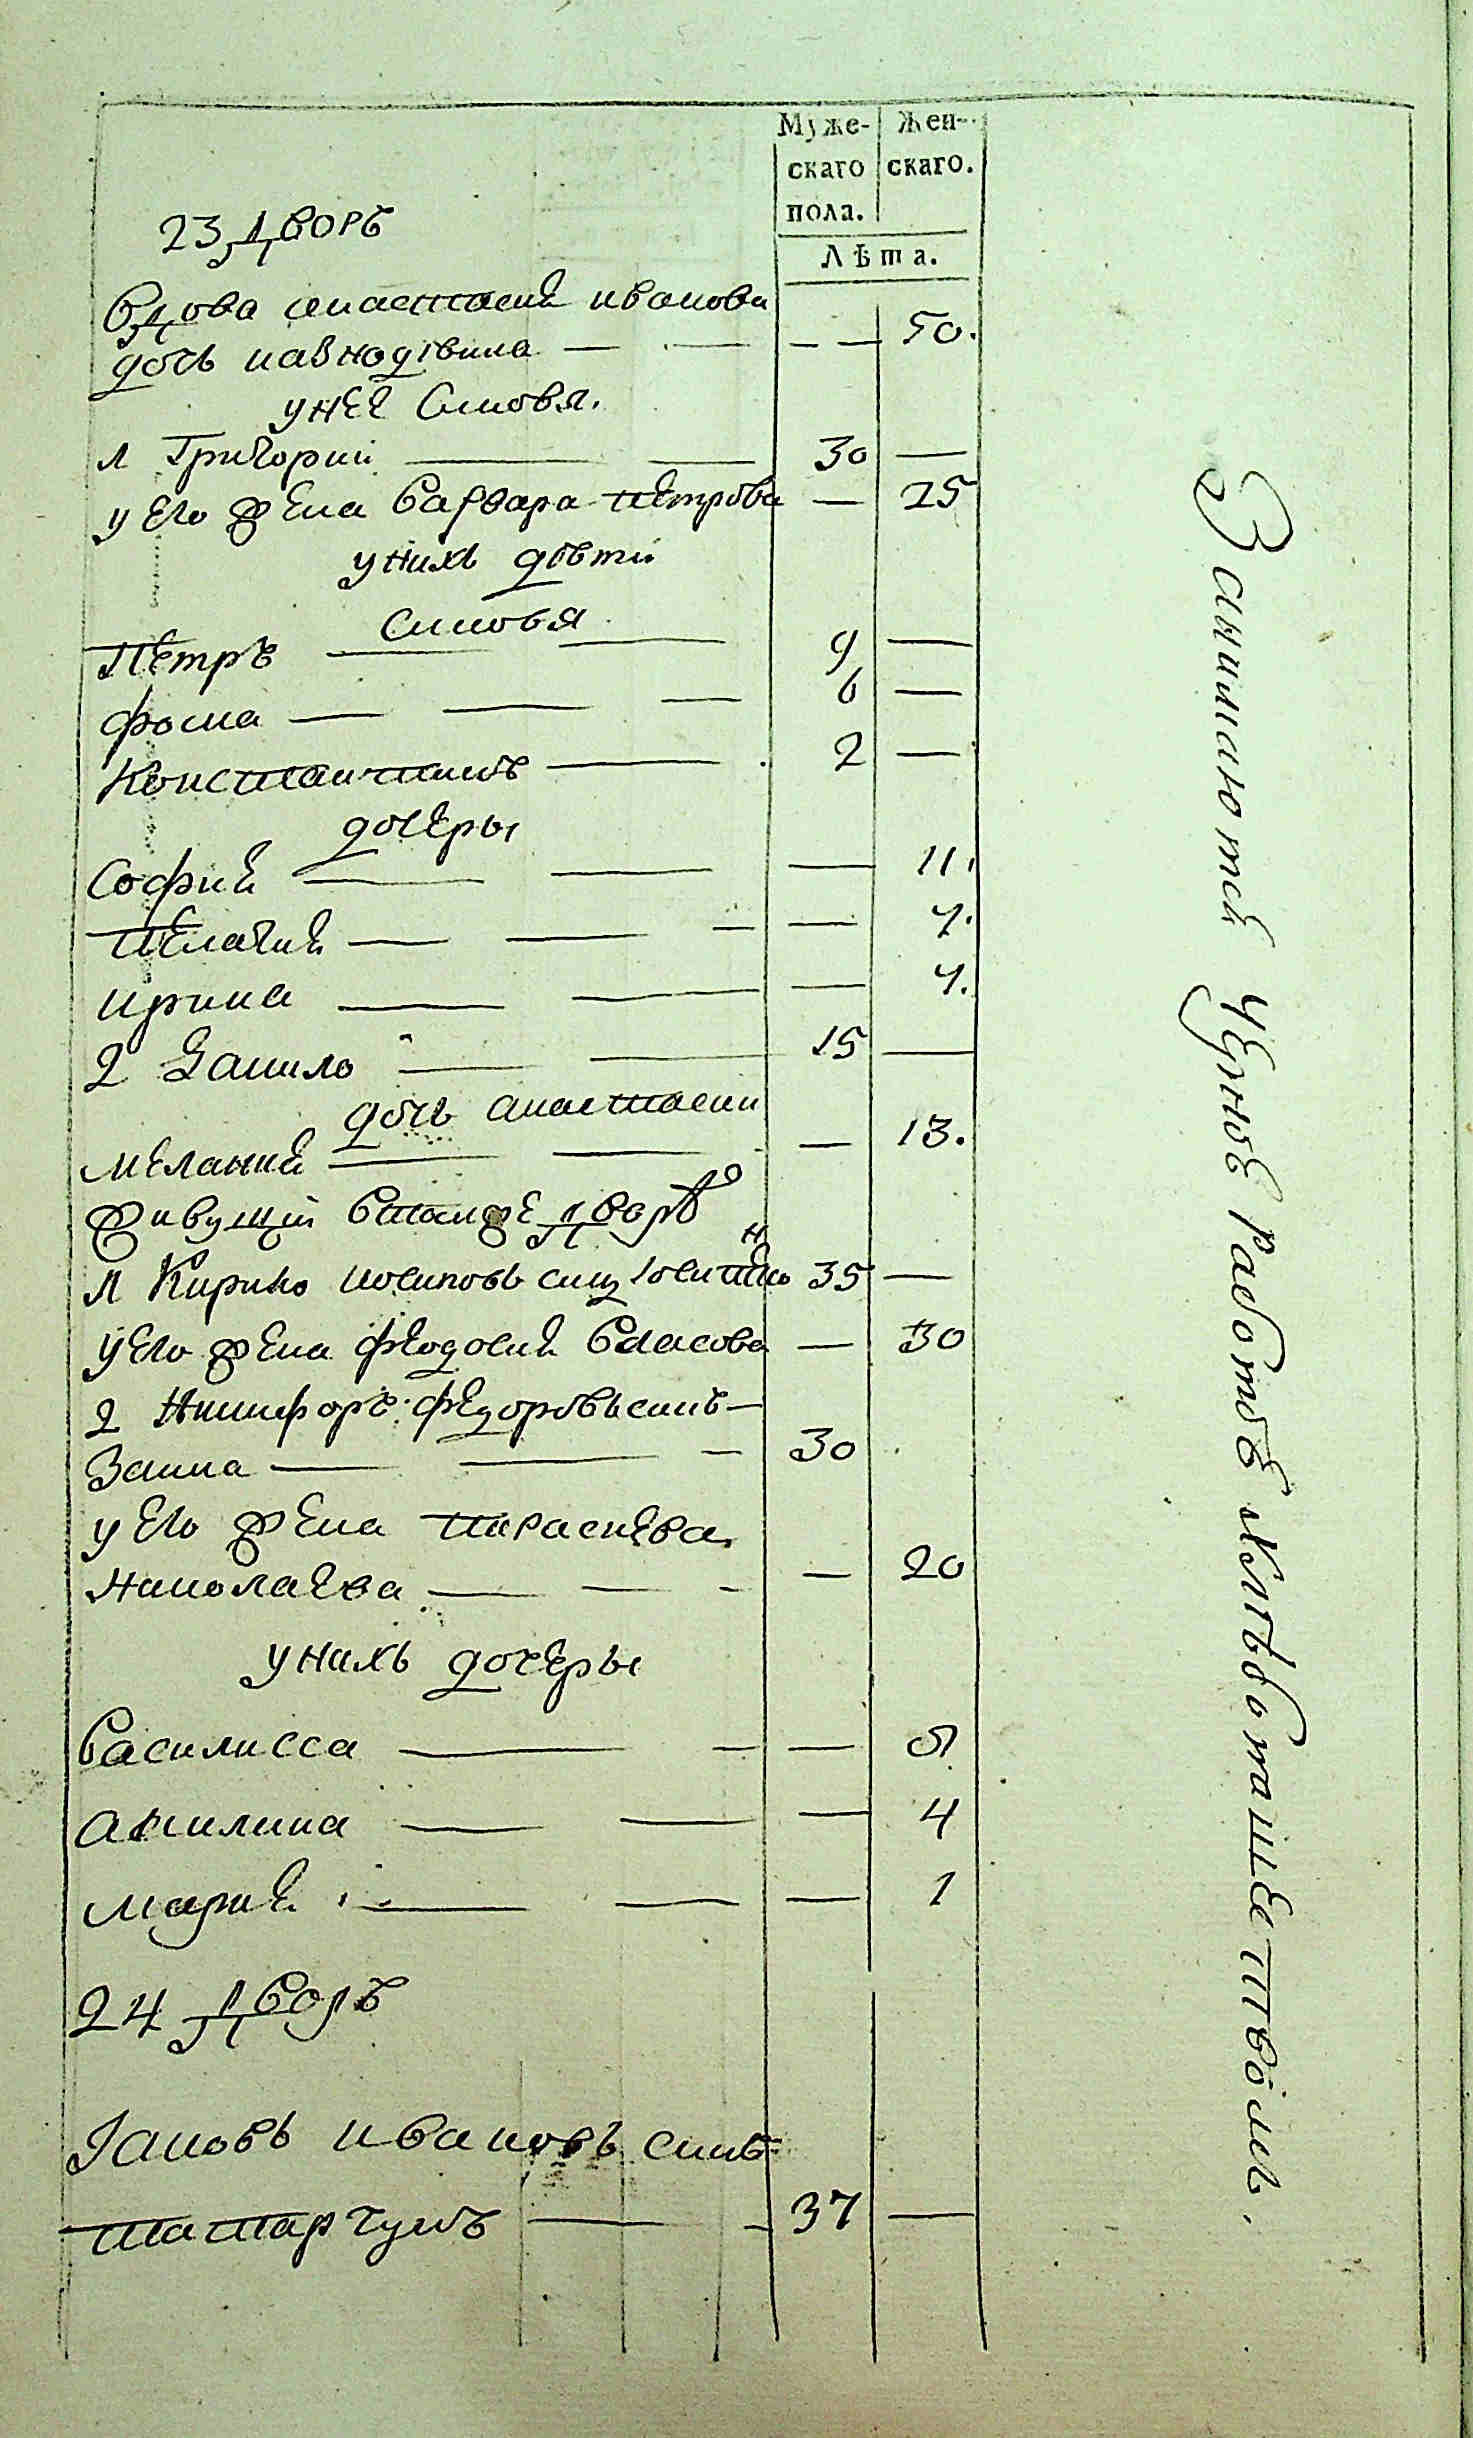 Муже-
скаго
пола.
Жен-
скаго.
Лѣта.
23 дворъ
Вдова анастасия иванова
дочь 50.
унее синовя.
1 Григорий 30
у его жена варвара петрова 25
унихь дѣти
синовья
Петръ 9
фома 6
Константинъ 2
дочеры
София 11.
Пелагия 7.
ирина 4.
2 Данило 15
дочь анастасии
мелания 13.
живущий втомже дворѣ
1 Кирило иосиповь синъ 35
у его жена феодосия власова 30
2 Никифоръ федоровьсинъ
Заика 30
у его жена параскева
Николаева 20
унихь дочеры
Василисса 5
акилина 4
мария 1
24 дворъ
Іаковъ ивановъ синъ
татарчукъ 37
Занимаются черною работою хлебопашеством.